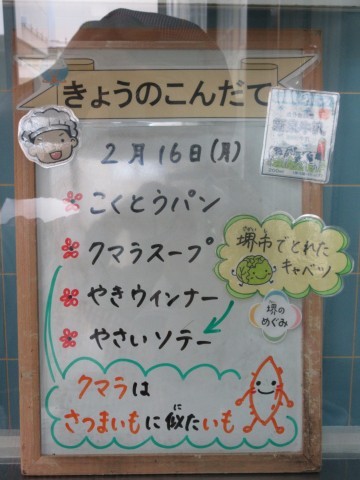 きょうのこんだて
2月16日(月)
こくとうパン
クマラスープ
やきウィンナー
やさいソテー
堺市でとれた
キャベツ
堺の
めぐみ
クマラは
さつまいもに似たいも
に